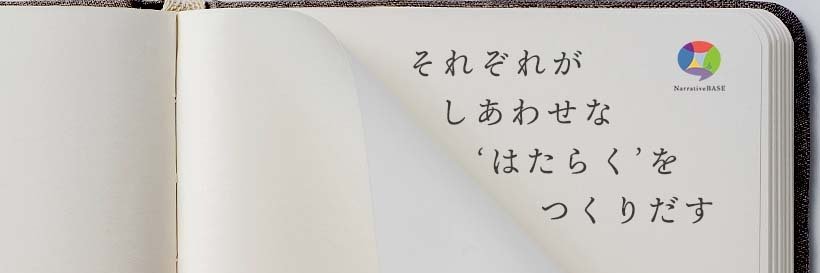 それぞれが
しあわせな
‘はたらく’を
つくりだす
NarrativeBASE